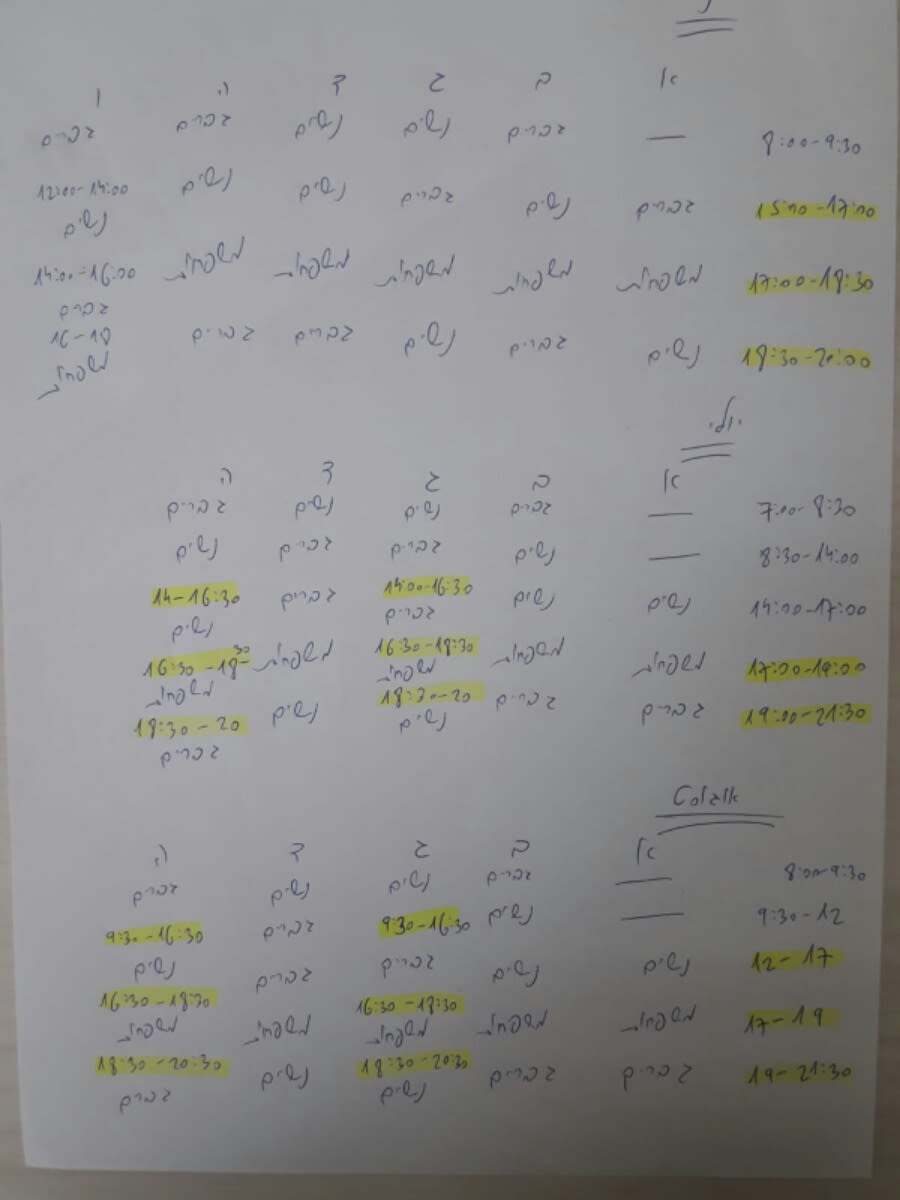 א ב ג ד ה ו
8:00-9:30 — גברים נשים נשים גברים גברים
15:00-17:00 גברים נשים גברים נשים נשים 12:00-14:00
נשים
17:00-18:30 משפחות משפחות משפחות משפחות משפחות 14:00-16:00
גברים
18:30-20:00 נשים גברים נשים גברים גברים 16-18
משפחות
יולי
א ב ג ד ה
7:00-8:30 — גברים נשים נשים גברים
8:30-14:00 — נשים גברים גברים נשים
14:00-17:00 נשים נשים 14:00-16:30 גברים 14-16:30
גברים נשים
17:00-19:00 משפחות משפחות 16:30-18:30 משפחות 16:30-18:30
משפחות משפחות
19:00-21:30 גברים גברים 18:30-20 נשים 18:30-20
נשים גברים
אוגוסט
א ב ג ד ה
8:00-9:30 — גברים נשים נשים גברים
9:30-12 — נשים 9:30-16:30 גברים 9:30-16:30
12-17 נשים נשים גברים גברים נשים
17-19 משפחות משפחות 16:30-18:30 משפחות 16:30-18:30
משפחות משפחות
19-21:30 גברים גברים 18:30-20:30 נשים 18:30-20:30
נשים גברים